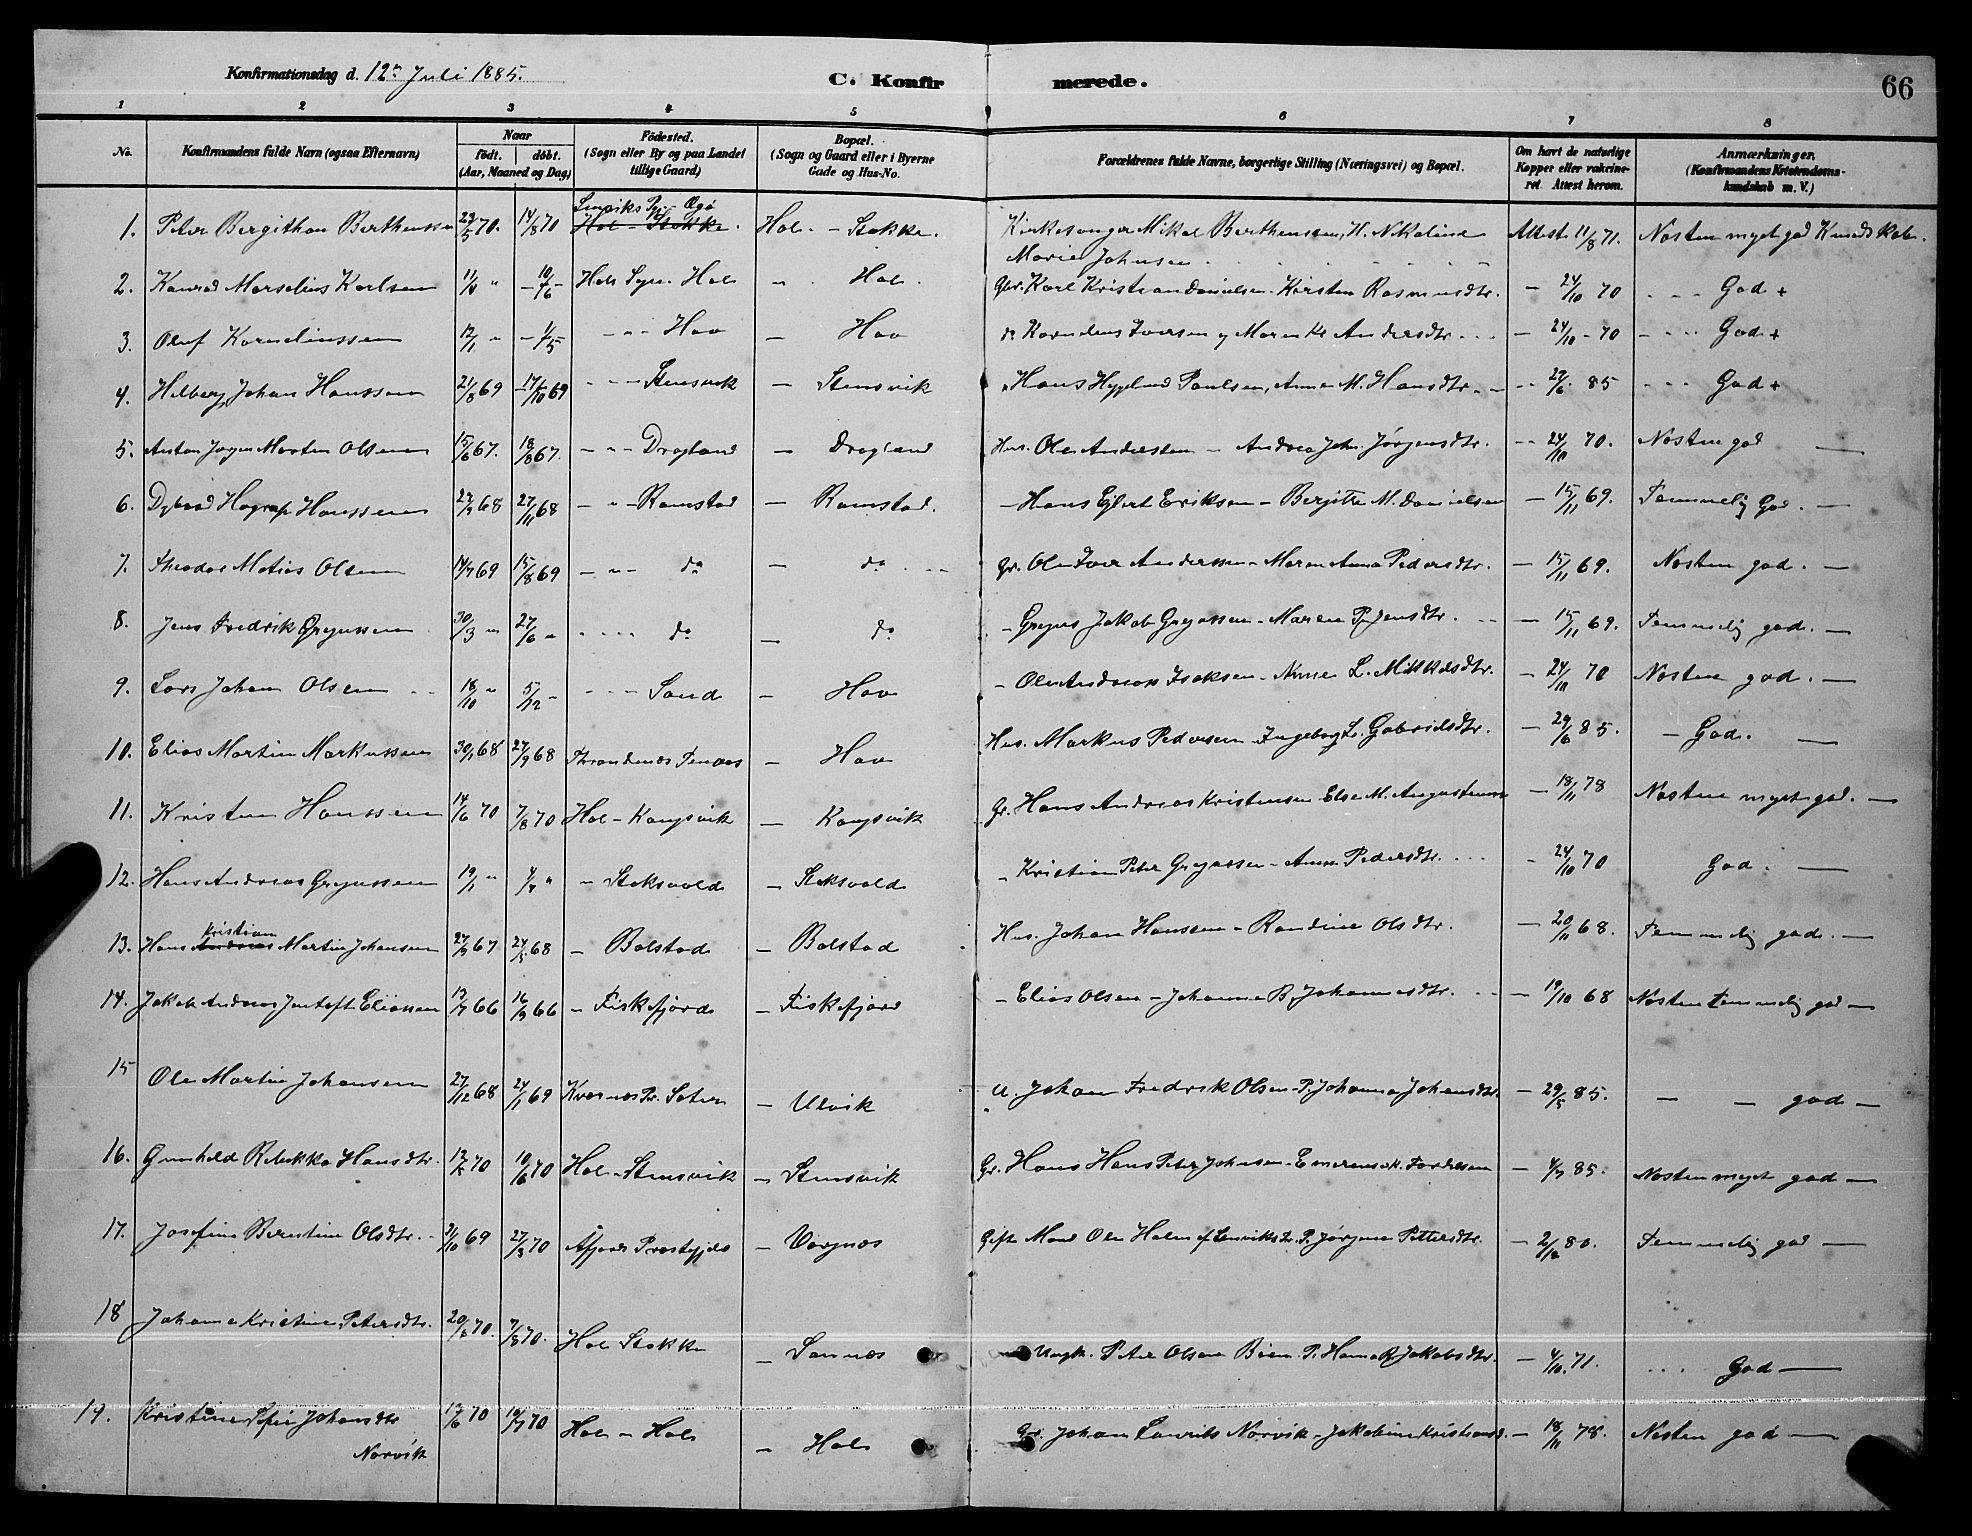 Konfirmationsdag d. 12te Juli 1885.
C. Konfirmerede.
66
1 2 3 4 5 6 7 8
No. Konfirmandens fulde Navn (ogsaa Efternavn) Naar födt. döbt. (Aar, Maaned og Dag) Födested. (Sogn eller By og paa Landet tillige Gaard) Bopæl. (Sogn og Gaard eller i Byerne Gade og Hus-No. Forældrenes fulde Navne, borgerlige Stilling (Næringsvei) og Bopæl. Om havt de naturlige Kopper eller vakcineret. Attest herom. Anmærkninger. (Konfirmandens Kristendomskundskab m. V.)
1. Peter Bergithon Berthenssen 70. 14/8 70 Hol - Stokke. Hol - Stokke. Kirkesanger Mikal Berthenssen, H. Nikoline
Marie Johnsen Attest 11/8 71. Næsten meget god Kundskab.
2. Konrad Marselius Karlsen 11/4 " - 10/6 - Hols Sogn Hol " Hol. Gbr. Karl Kristian Danielsen Kirsten Rasmusdtr. - 24/10 70 God +
3. Oluf Korneliussen 17/1 " - 1/5 - " - Hov - Hov Kornelius Iversen og Maren Kr Andersdtr. - 24/10 - 70 God +
4. Helberg Johan Hanssen 21/8 69 - 17/10 69 Stensvik - Stensvik Hans Paulsen, Anne M. Hansdtr. 85 God +
5. Anton Martin Olsen 15/6 67. 18/8 67. - " - Drogland - Drogland Hus. Ole Anderssen - Jørgensdtr. - 24/10 70. Næsten god -
6. Hanssen 68 27/11 68 - " - Ramstad - Ramstad. - Hans Ejlert Eriksen - Bergitte M. Danielsen - 15/11 69. Temmelig God. -
7. Theodor Matias Olsen 14/7 69 15/8 69 - " - do - do Gr. Ole Iver Anderssen - Maren Anna Pedersdtr. - 15/11 69. Næsten god. -
8. Jens Fredrik Gregussen 30/3 " 27/6 " do - do - Gregus Jakob Gregussen - Maren P. Jensdtr. - 15/11 69. Temmelig god. -
9. Lars Johan Olsen 18/10 " 5/12 " Sand - Hov - Ole Andreas Isaksen - L. - 24/10 70 Næsten god. -
10. Elias Martin Markussen 30/1 68 27/9 68 Throndenæs - Hov Hus. Markus Pedersen Ingeborg L. Gabrielsdtr. - 29/6 85. - God. -
11. Kristen Hanssen 14/6 70 7/8 70 Hol - Kongsvik - Kongsvik Gr. Hans Andreas Kristensen Else M. Augustinus - 18/11 78 Næsten meget god. -
12. Hans Andreas Gregussen 19/1 " " - Stoksvold - Stoksvold - Kristian Peter Gregussen - Anne Pedersdtr. - 24/10 70 God. -
Kristian
13. Hans Andreas Martin Johansen 67 24/5 68 - Bolstad - Bolstad Hus. Johan Hanssen - Randine Olsdtr. - 20/11 68. Temmelig god. -
14. Jakob Andreas Jentoft Eliassen 13/7 66 16/9 66 - Fiskefjord - Fiskefjord - Elias Olsen - Johanna B. Johannesdtr. - 19/10 68 Næsten temmelig god -
15 Ole Martin Johansen 27/12 68 24/1 69 Kvernes Pr. - Ulvik U. Johan Fredrik Olsen - P. Johanna Johansdtr. - 29/5 85. - - god -
16. Gunhild Rebekka Hansdtr. 70 10/6 70 Hol - Stensvik - Stensvik Gr. Hans Hans Peter Johnsen - - 4/7 85. Næsten meget god -
17. Josefine Berntine Olsdtr. 31/10 69 27/3 70 Åfjords Prestegjeld - Vognæs Gift Mand Ole Holm af Lenviks P. Jørgine Pettersdtr. - 80. Temmelig god -
18 Johanna Kristine Petersdtr. 70. 7/8 70. Hol Stokke - Sannæs Ungk. Peter Olsen Jakobsdtr. - 4/10 71. God -
19. Kristine Sofie Johansdtr
Norvik 70 70 Hol - Hol - Hol Gr. Johan Norvik - Jakobine - 18/11 78. Næsten god -